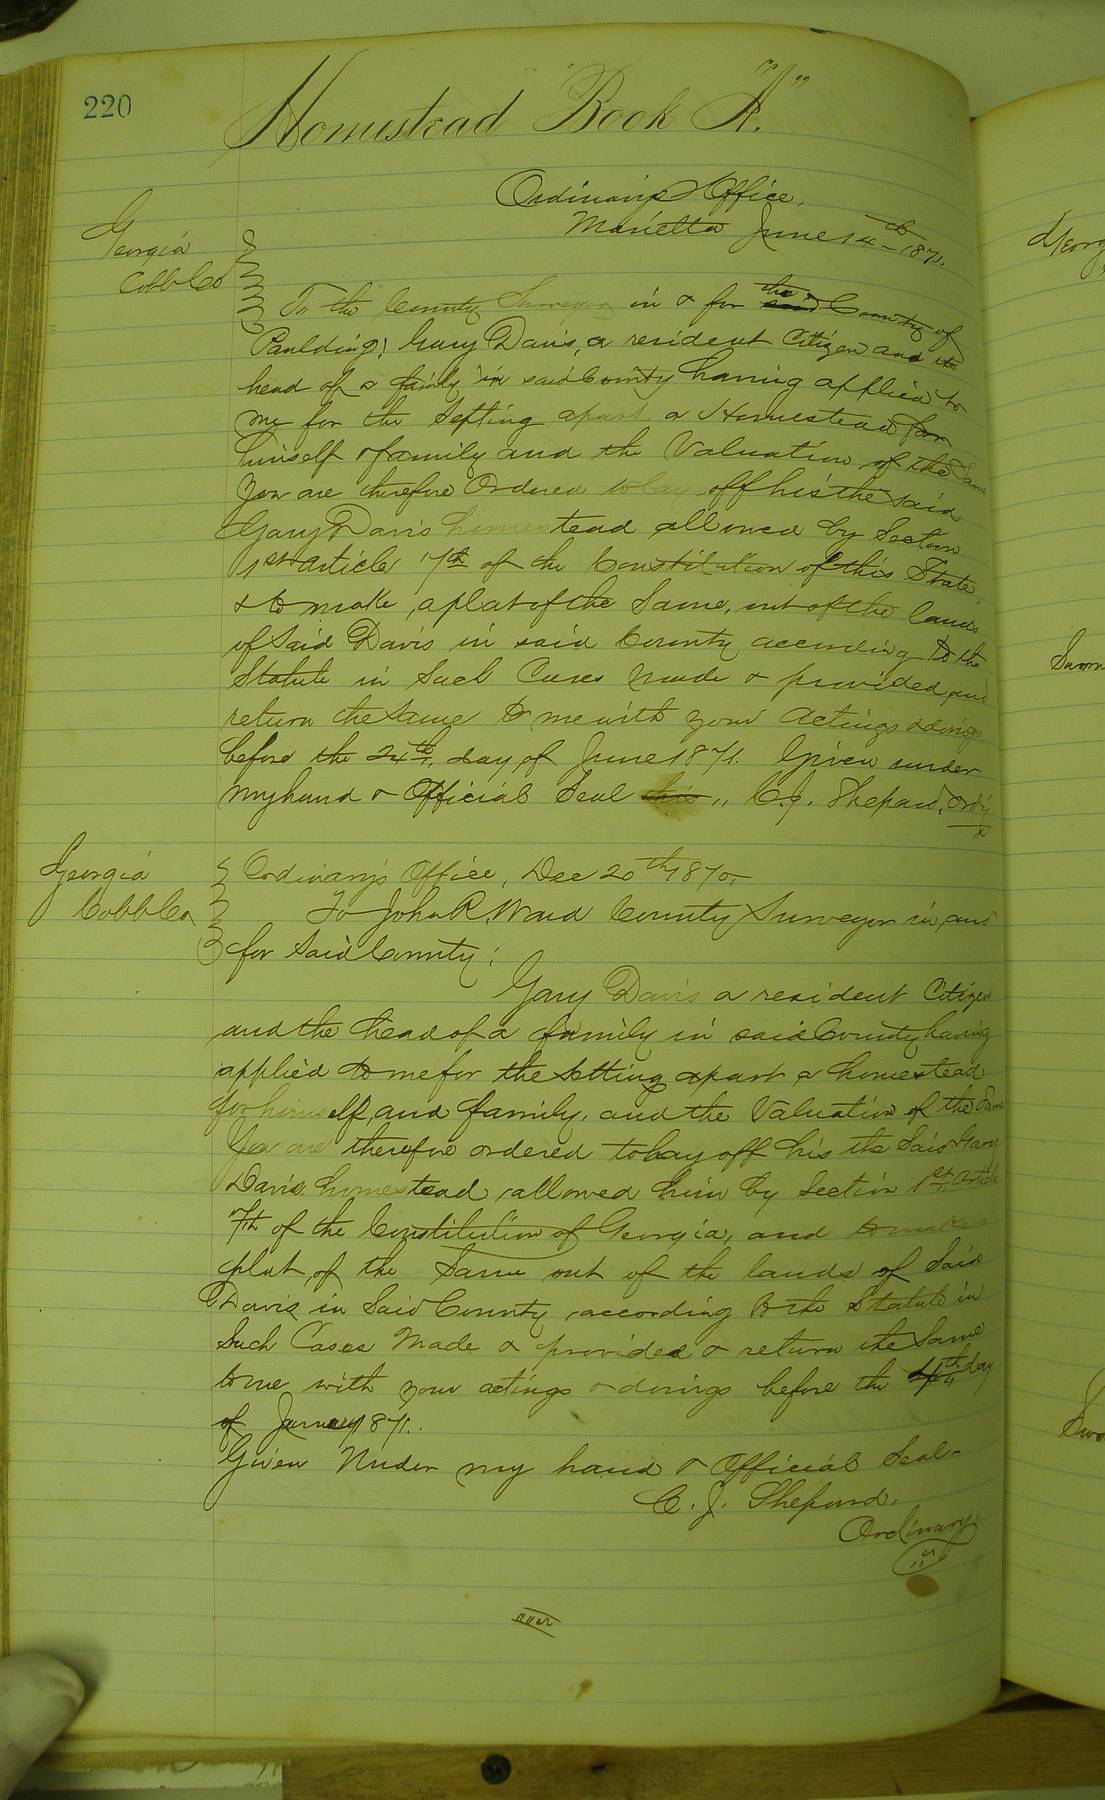 220
Homestead Book "A".
Ordinary's Office,
Marietta June 14th 1871.
Georgia
Cobb Co
To the County Surveyor in & for the said County of
Paulding; Gary Davis, a resident Citizen and the
head of a family in said County having applied to
me for the Setting apart a Homestead for
himself & family and the Valuation of the Same
You are therefore Ordered to lay off his the said
Gary Davis homestead allowed by Section
1st article 7th of the Constitution of this State,
& to make a plat of the Same, out of the lands
of Said Davis in said County according to the
Statute in Such Cases made & provided, and
return the same to me with your actings & doings
before the 24th, day of June 1871. Given under
my hand & Official Seal this " C. J. Shepard, Ord'y
Georgia
Cobb Co,
Ordinary's Office, Dec 20th 1870,
To John R. Ward County Surveyor in, and
for Said County:
Gary Davis a resident Citizen
and the head of a family in said County having
applied to me for the setting apart a homestead
for himself, and family, and the Valuation of the Same
You are therefore ordered to lay off his the Said Gary
Davis homestead allowed him by Section 1st, Article
7th of the Constitution of Georgia, and to make a
plat, of the Same out of the lands of Said
Davis in Said County according to the Statute in
Such Cases Made & provided & return the Same
to me with your actings & doings before the 4th day
of January 1871.
Given Under my hand & Official Seal
C. J. Shepard,
Ordinary
over
Georg
Sworn